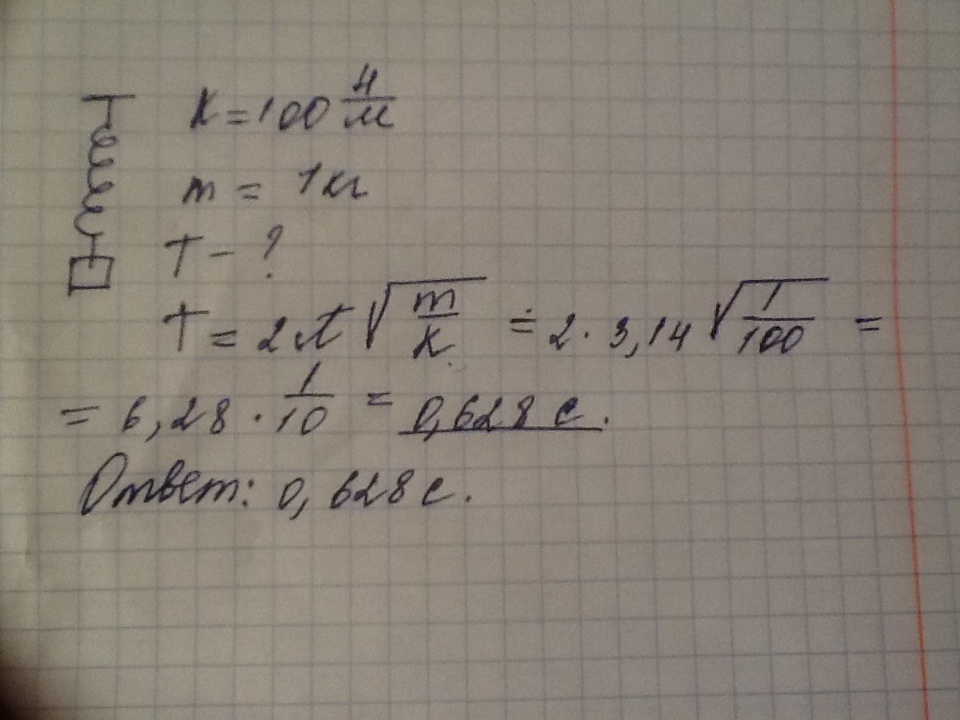 K = 100 Н/м
m = 1 кг
T - ?
T = 2π√(m/K) = 2 · 3,14 √(1/100) =
= 6,28 · 1/10 = 0,628 с.
Ответ: 0,628 с.